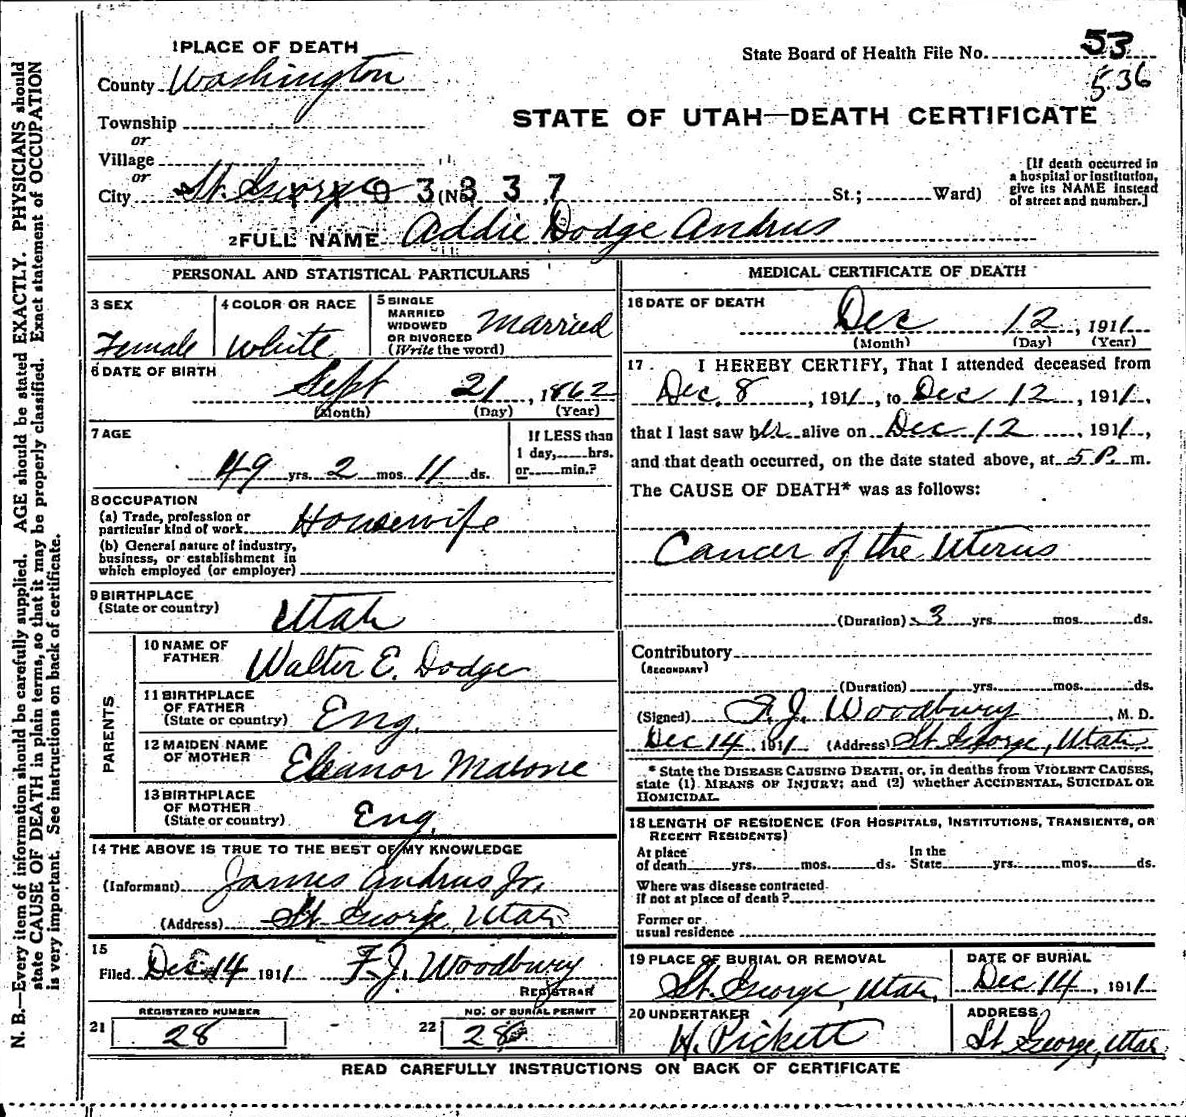 1 PLACE OF DEATH
County Washington
Township
or
Village
or
City St. George (No. St.; Ward)
1103337
State Board of Health File No. 53
536
STATE OF UTAH—DEATH CERTIFICATE
[If death occurred in
a hospital or institution,
give its NAME instead
of street and number.]
2 FULL NAME Addie Dodge Andrus
PERSONAL AND STATISTICAL PARTICULARS
3 SEX
Female
4 COLOR OR RACE
White
5 SINGLE
MARRIED
WIDOWED
OR DIVORCED
(Write the word)
Married
6 DATE OF BIRTH
Sept 21, 1862
(Month) (Day) (Year)
7 AGE
49 yrs. 2 mos. 11 ds.
If LESS than
1 day, hrs.
or min.?
8 OCCUPATION
(a) Trade, profession or
particular kind of work Housewife
(b) General nature of industry,
business, or establishment in
which employed (or employer)
9 BIRTHPLACE
(State or country) Utah
PARENTS
10 NAME OF
FATHER Walter E. Dodge
11 BIRTHPLACE
OF FATHER
(State or country) Eng.
12 MAIDEN NAME
OF MOTHER Eleanor Malone
13 BIRTHPLACE
OF MOTHER
(State or country) Eng.
14 THE ABOVE IS TRUE TO THE BEST OF MY KNOWLEDGE
(Informant) James Andrus Jr.
(Address) St. George, Utah
15
Filed Dec 14 1911 F. J. Woodbury
REGISTRAR
REGISTERED NUMBER
21 28
NO. OF BURIAL PERMIT
22 28
MEDICAL CERTIFICATE OF DEATH
16 DATE OF DEATH
Dec 12, 1911
(Month) (Day) (Year)
17. I HEREBY CERTIFY, That I attended deceased from
Dec. 8, 1911, to Dec 12, 1911,
that I last saw her alive on Dec 12, 1911,
and that death occurred, on the date stated above, at 5 P. m.
The CAUSE OF DEATH* was as follows:
Cancer of the Uterus
(Duration) 3 yrs. mos. ds.
Contributory
(SECONDARY)
(Duration) yrs. mos. ds.
(Signed) F. J. Woodbury, M. D.
Dec 14 1911 (Address) St. George, Utah
* State the DISEASE CAUSING DEATH, or, in deaths from VIOLENT CAUSES,
state (1) MEANS OF INJURY; and (2) whether ACCIDENTAL, SUICIDAL OR
HOMICIDAL.
18 LENGTH OF RESIDENCE (FOR HOSPITALS, INSTITUTIONS, TRANSIENTS, OR
RECENT RESIDENTS)
At place
of death yrs. mos. ds.
In the
State yrs. mos. ds.
Where was disease contracted
if not at place of death?
Former or
usual residence
19 PLACE OF BURIAL OR REMOVAL
St. George, Utah.
DATE OF BURIAL
Dec 14, 1911
20 UNDERTAKER
H. Pickett
ADDRESS
St George, Utah
READ CAREFULLY INSTRUCTIONS ON BACK OF CERTIFICATE
N. B.—Every item of information should be carefully supplied. AGE should be stated EXACTLY. PHYSICIANS should
state CAUSE OF DEATH in plain terms, so that it may be properly classified. Exact statement of OCCUPATION
is very important. See instructions on back of certificate.